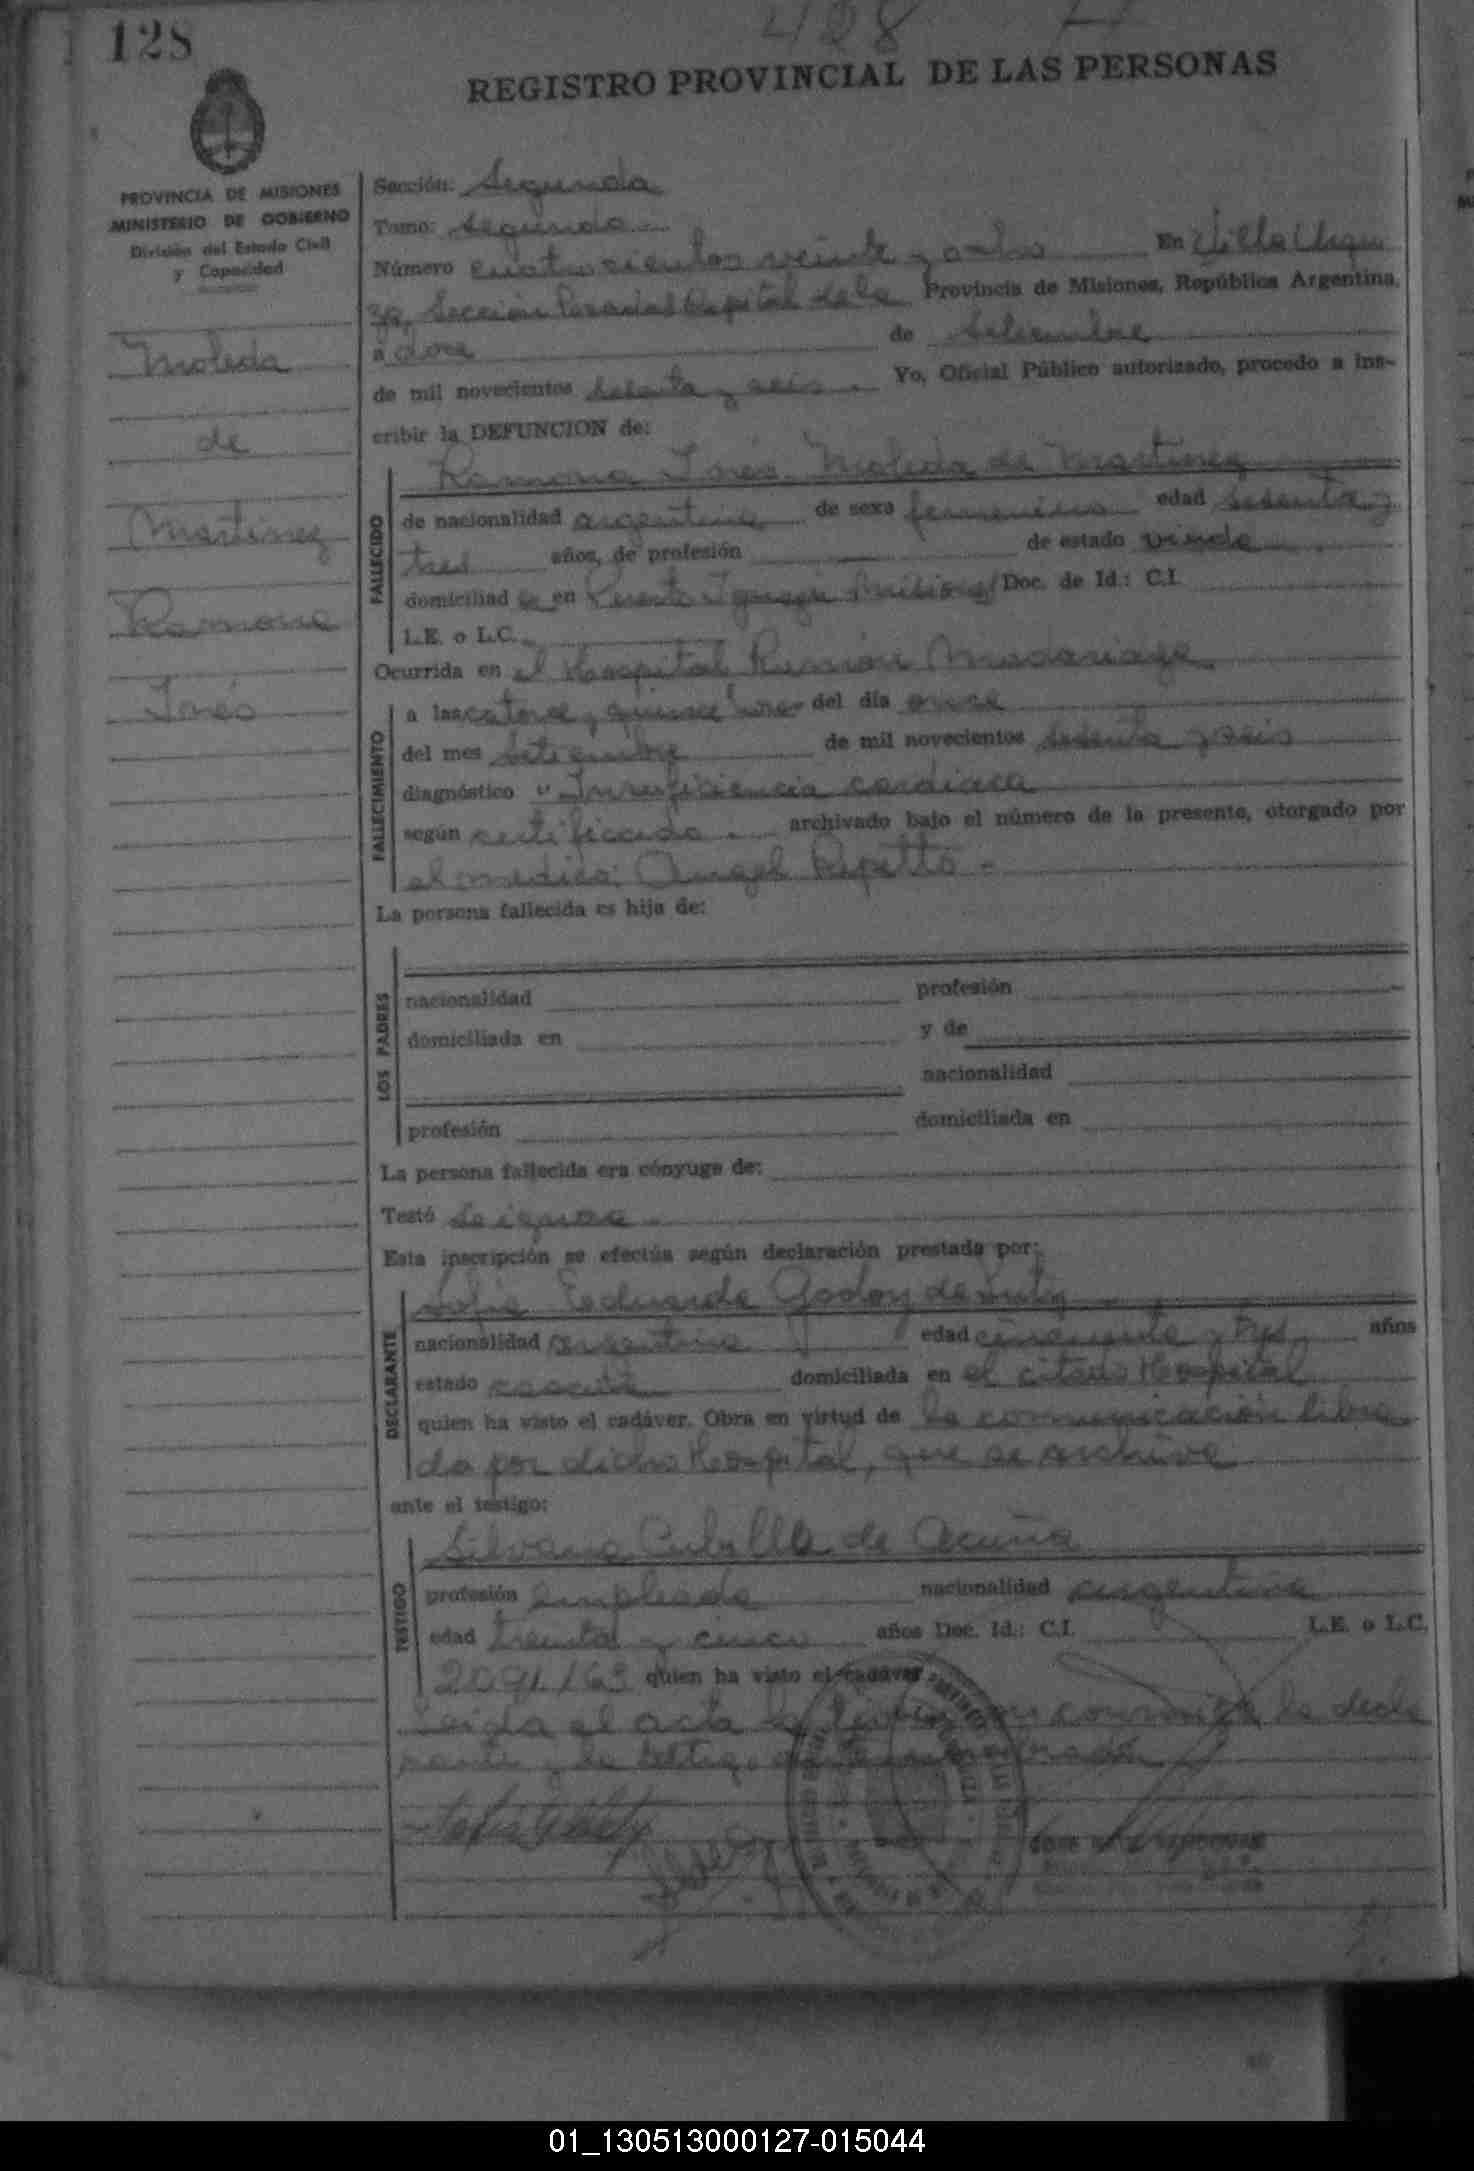 128
428
REGISTRO PROVINCIAL DE LAS PERSONAS
PROVINCIA DE MISIONES
MINISTERIO DE GOBIERNO
División del Estado Civil
y Capacidad
Moleda
de
Martinez
Ramona
Inés
Sección: Segunda
Tomo: Segundo
Número cuatrocientos veinte y ocho En Villa Urqui
za, Sección Posadas Capital de la Provincia de Misiones, República Argentina,
a doce de Setiembre
de mil novecientos sesenta y seis. Yo, Oficial Público autorizado, procedo a ins-
cribir la DEFUNCION de:
FALLECIDO
Ramona Inés Moleda de Martinez
de nacionalidad argentina de sexo femenino edad sesenta y
tres años, de profesión de estado viuda
domiciliad a en Puerto Iguazú Misiones Doc. de Id.: C.I.
L.E. o L.C.
Ocurrida en el Hospital Ramón Madariaga
FALLECIMIENTO
a las catorce y quince horas del día once
del mes Setiembre de mil novecientos sesenta y seis
diagnóstico "Insuficiencia cardiaca
según certificado archivado bajo el número de la presente, otorgado por
el médico: Angel Repetto -
La persona fallecida es hija de:
LOS PADRES
nacionalidad profesión
domiciliada en y de
nacionalidad
profesión domiciliada en
La persona fallecida era cónyuge de:
Testó Se ignora
Esta inscripción se efectúa según declaración prestada por:
DECLARANTE
Eduarda Godoy de
nacionalidad argentina edad cincuenta y tres años
estado casada domiciliada en el citado Hospital
quien ha visto el cadáver. Obra en virtud de la comunicación libra
da por dicho Hospital, que se archiva
ante el testigo:
TESTIGO
Silvana Cubilla de Acuña
profesión empleada nacionalidad argentina
edad treinta y cinco años Doc. Id.: C.I. L.E. o L.C.
quien ha visto el cadáver
Leida el acta la firman conmigo la decla
rante y la testigo
01_130513000127-015044